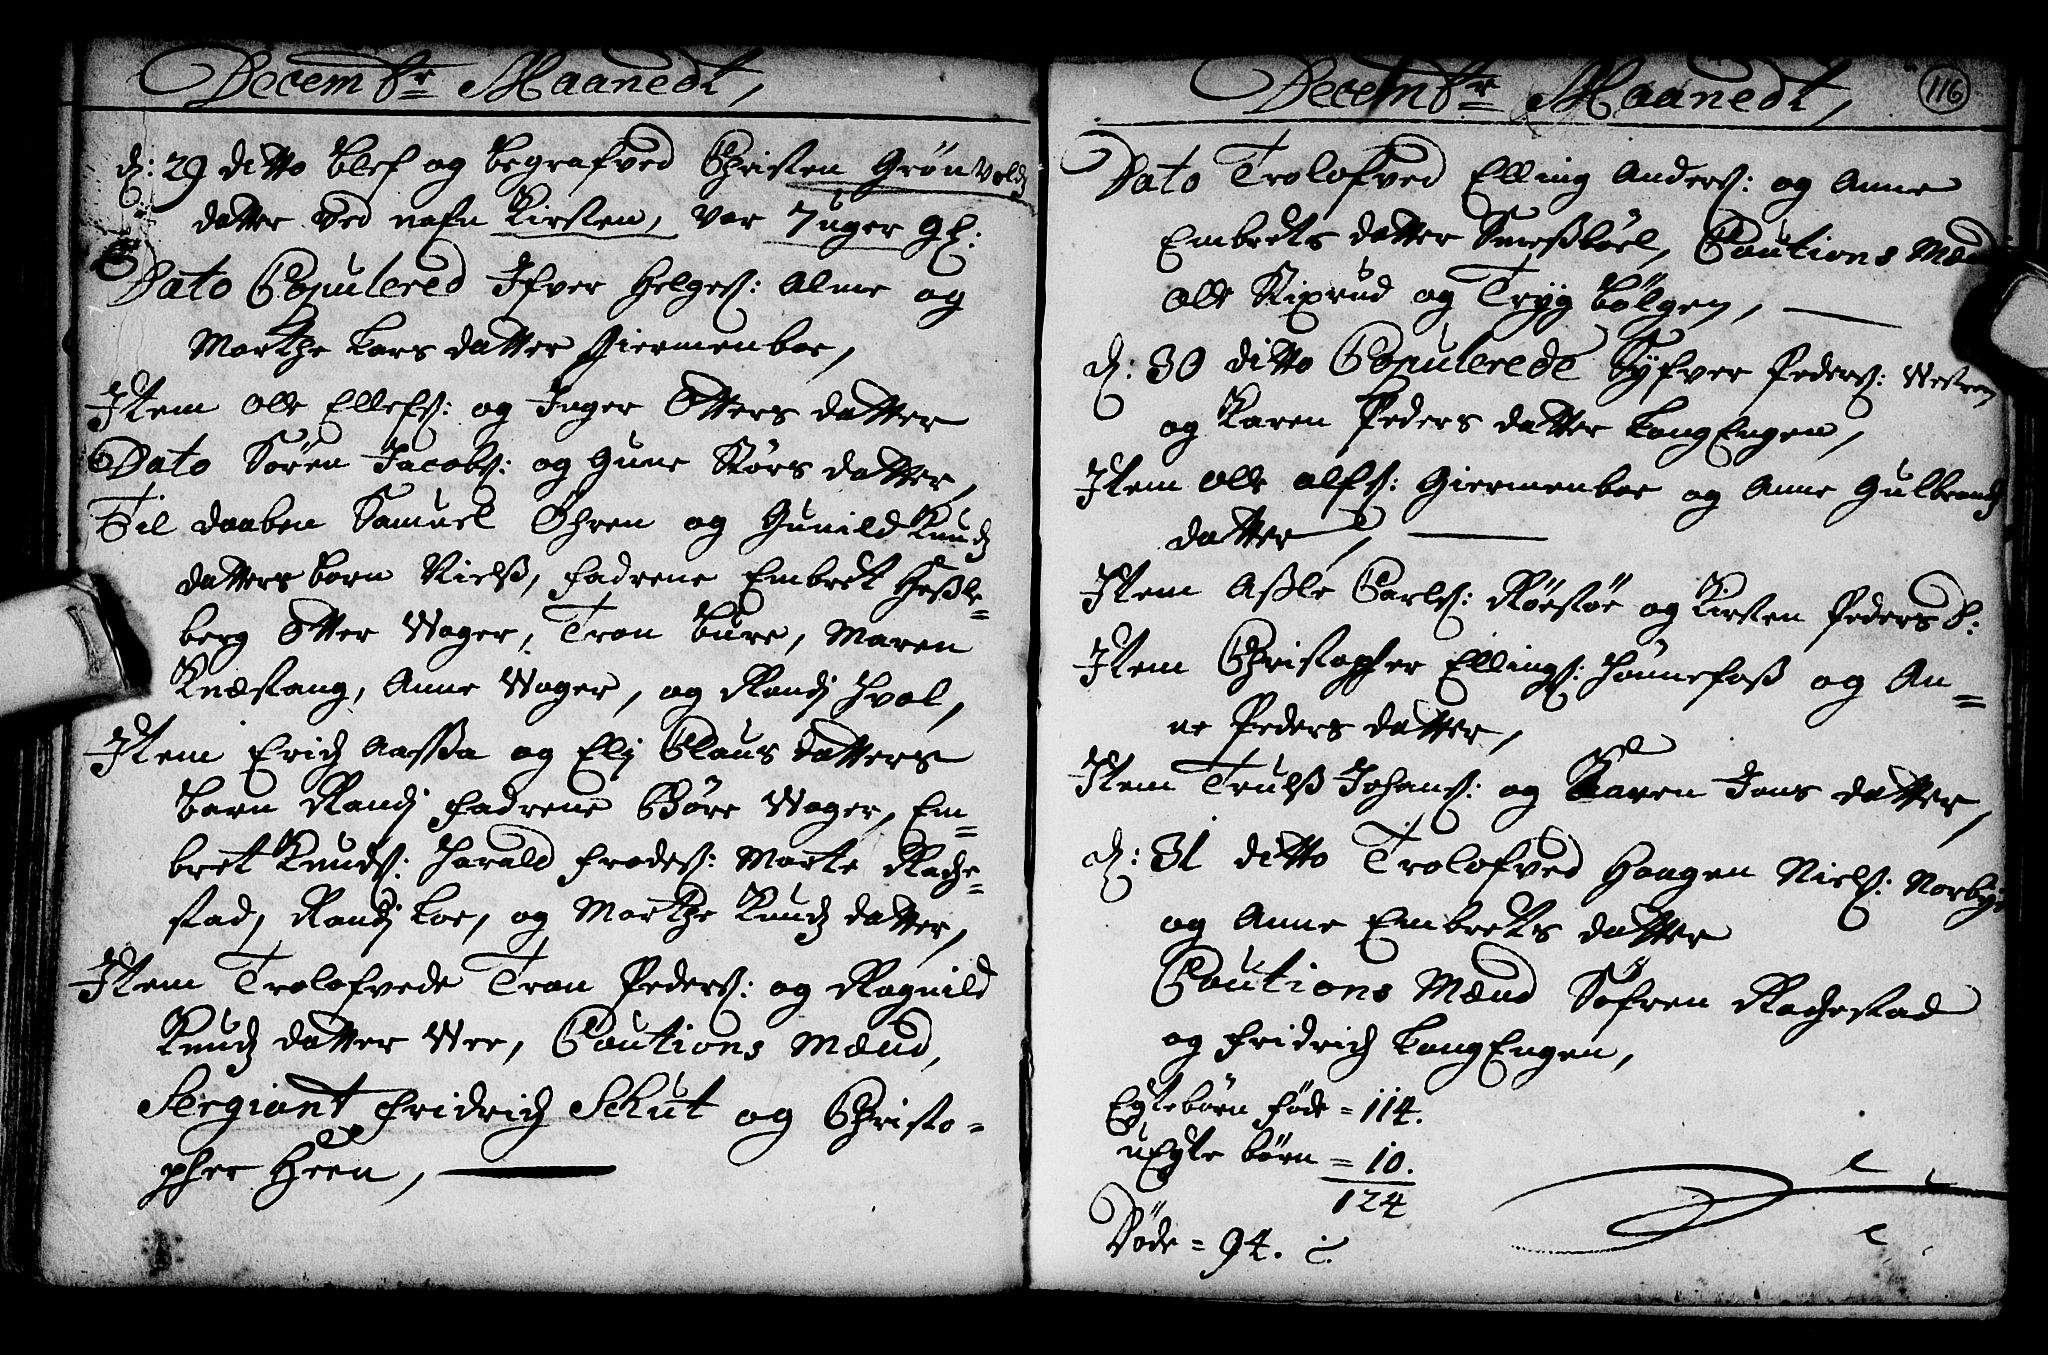 Decembr Maanedt,
d: 29 ditto blef og begrafved Christen Grønvolds
datter ved nafn Kirsten, var 7 uger gl:
Dato Copulered Ifver Helges: Alme og
Marthe Lars datter Giermenboe,
Item Ole Ellefs: og Inger Otters datter
Dato Søren Jacobs: og Gune Kørs datter,
Til daaben Samuel Ohren og Gunild Knuds
datters barn Nielß, fadrene Embret Heßle=
berg Otter Wager, Tron Bure, Maren
Knæstang, Anne Wager, og Randj Hval,
Item Erich Aasßa og Elj Claus datters
barn Randj fadrene Børe Wager, Em=
bret Knuds: Harald Frodes: Marte Rache=
stad, Randj Loe, og Marthe Knuds datter,
Item Trolofvede Tron Peders: og Ragnild
Knuds datter Wee, Cautions Mænd,
Sergiant Fridrich Schut og Christo=
pher Heen,
Decembr Maanedt,
116
Dato Trolofved Elling Anders: og Anne
Embrets datter Smeßbøel, Cautions Mænd
Ole Kixrud og Tryg Bølgen,
d: 30 ditto Copulerede Syfver Peders: Western
og Karen Peders datter LangEngen,
Item Ole Alfs: Giermenboe og Anne Gulbrands
datter,
Item Aßle Carls: Røesøe og Kirsten Peders D:
Item Christopher Ellings: Hønnefoß og An=
ne Peders datter,
Item Trulß Johans: og Karen Jens datter,
d: 31 ditto Trolofved Haagen Niels: Norbye
og Anne Embrets datter
Cautions Mænd Søfren Rachestad
og Fridrich LangEngen,
Egtebørn føde = 114.
uEgte børn = 10.
124
Døde = 94.